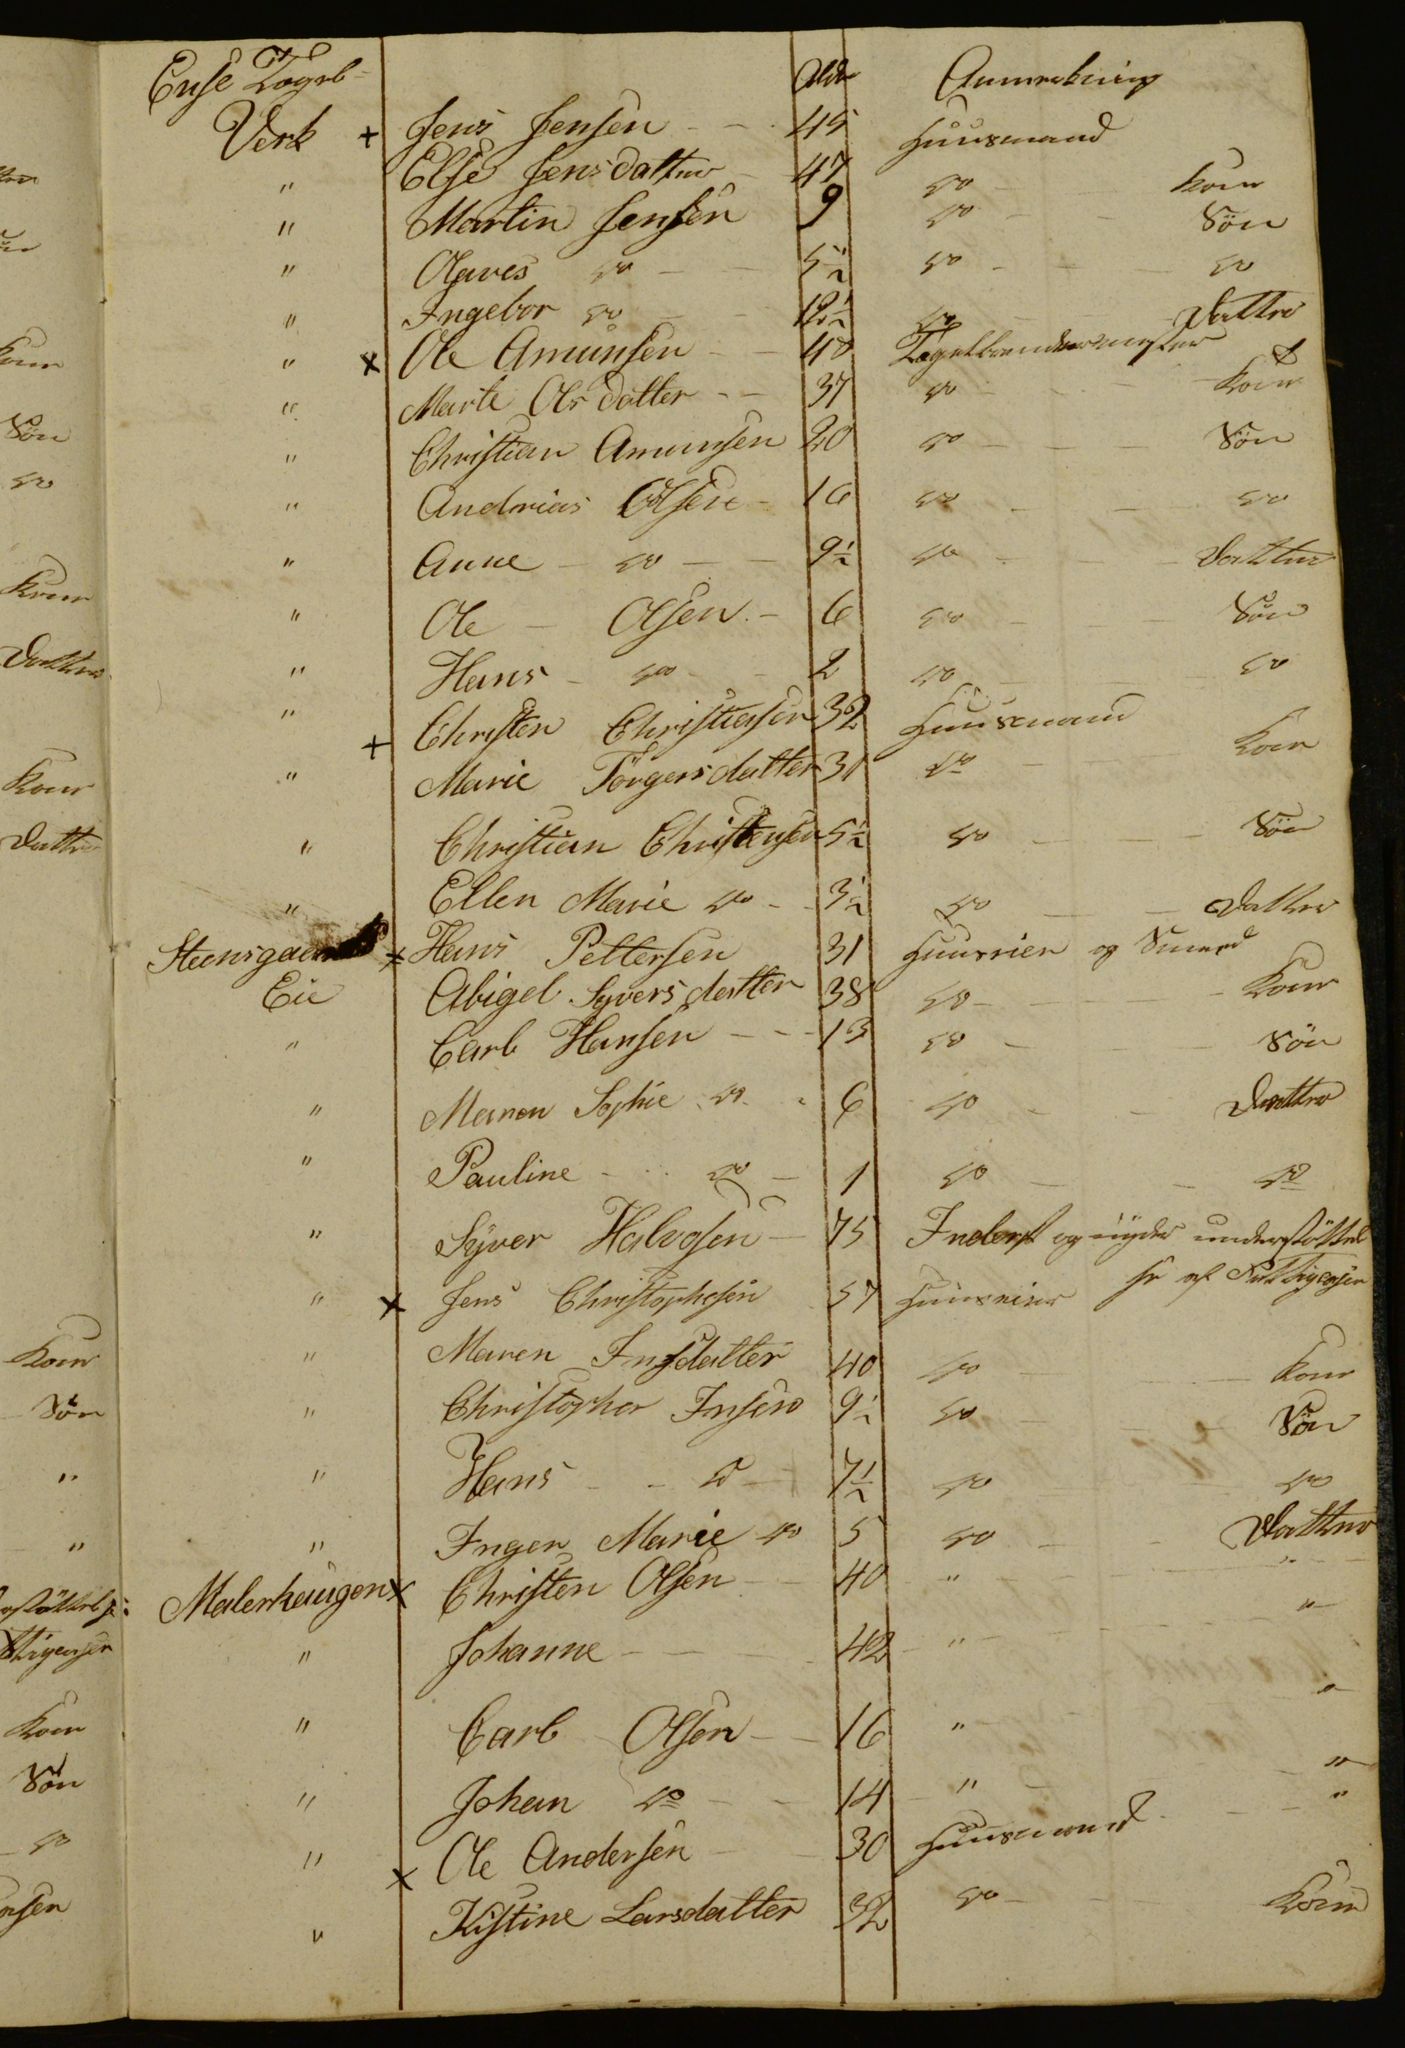 Ense Tægl- Alder Anmerkning
Verk + Jens Jensen 45 Huusmand
" Else Jensdatter 47 do Kone
" Martin Jensen 9 do Søn
" Olaves do 5½ do do
" Ingebor do 12½ do Datter
" x Ole Amunsen 40 Tægelbrendermester
" Marte Olsdatter 37 do Kone
" Christian Amunsen 20 do Søn
" Andreas Olsen 16 do do
" Anne do 9½ do Datter
" Ole Olsen 6 do Søn
" Hans do 2 do do
" + Christen Christiasen 32 Huusmand
" Marie Törgersdatter 31 do Kone
" Christian Christensen 5½ do Søn
" Ellen Marie do 3½ do Datter
Steensgaard x Hans Pettersen 31 Huuseier og Smed
Eie Abigel Syversdatter 38 do Kone
" Carl Hansen 13 do Søn
" Maren Sophie do 6 do Datter
" Pauline do 1 do do
" Syver Halvosen 75 Inderst og nyder understöttel
se af Fattigcasen
" x Jens Christophesen 57 Huuseier
" Maren Jnsdatter 40 do Kone
" Christopher Jnsen 9½ do Søn
" Hans do 7½ do do
" Inger Marie do 5 do Datter
Malerhaugen x Christen Olsen 40 " "
" Johanne 42 " "
" Carl Olsen 16 " "
" Johan do 14 " "
" x Ole Andersen 30 Huusmand "
" Kistine Larsdatter 32 do Kone